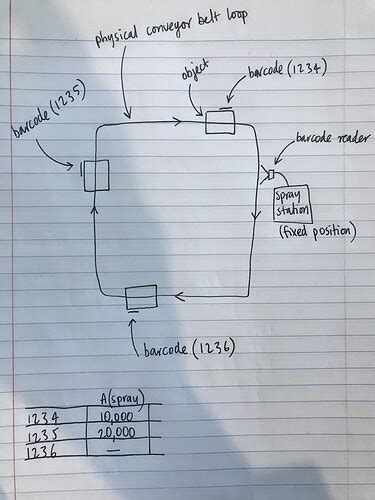 physical conveyor belt loop
object
barcode (1234)
barcode (1235)
barcode reader
spray
station
(fixed position)
barcode (1236)
A(spray)
1234 10,000
1235 20,000
1236 —